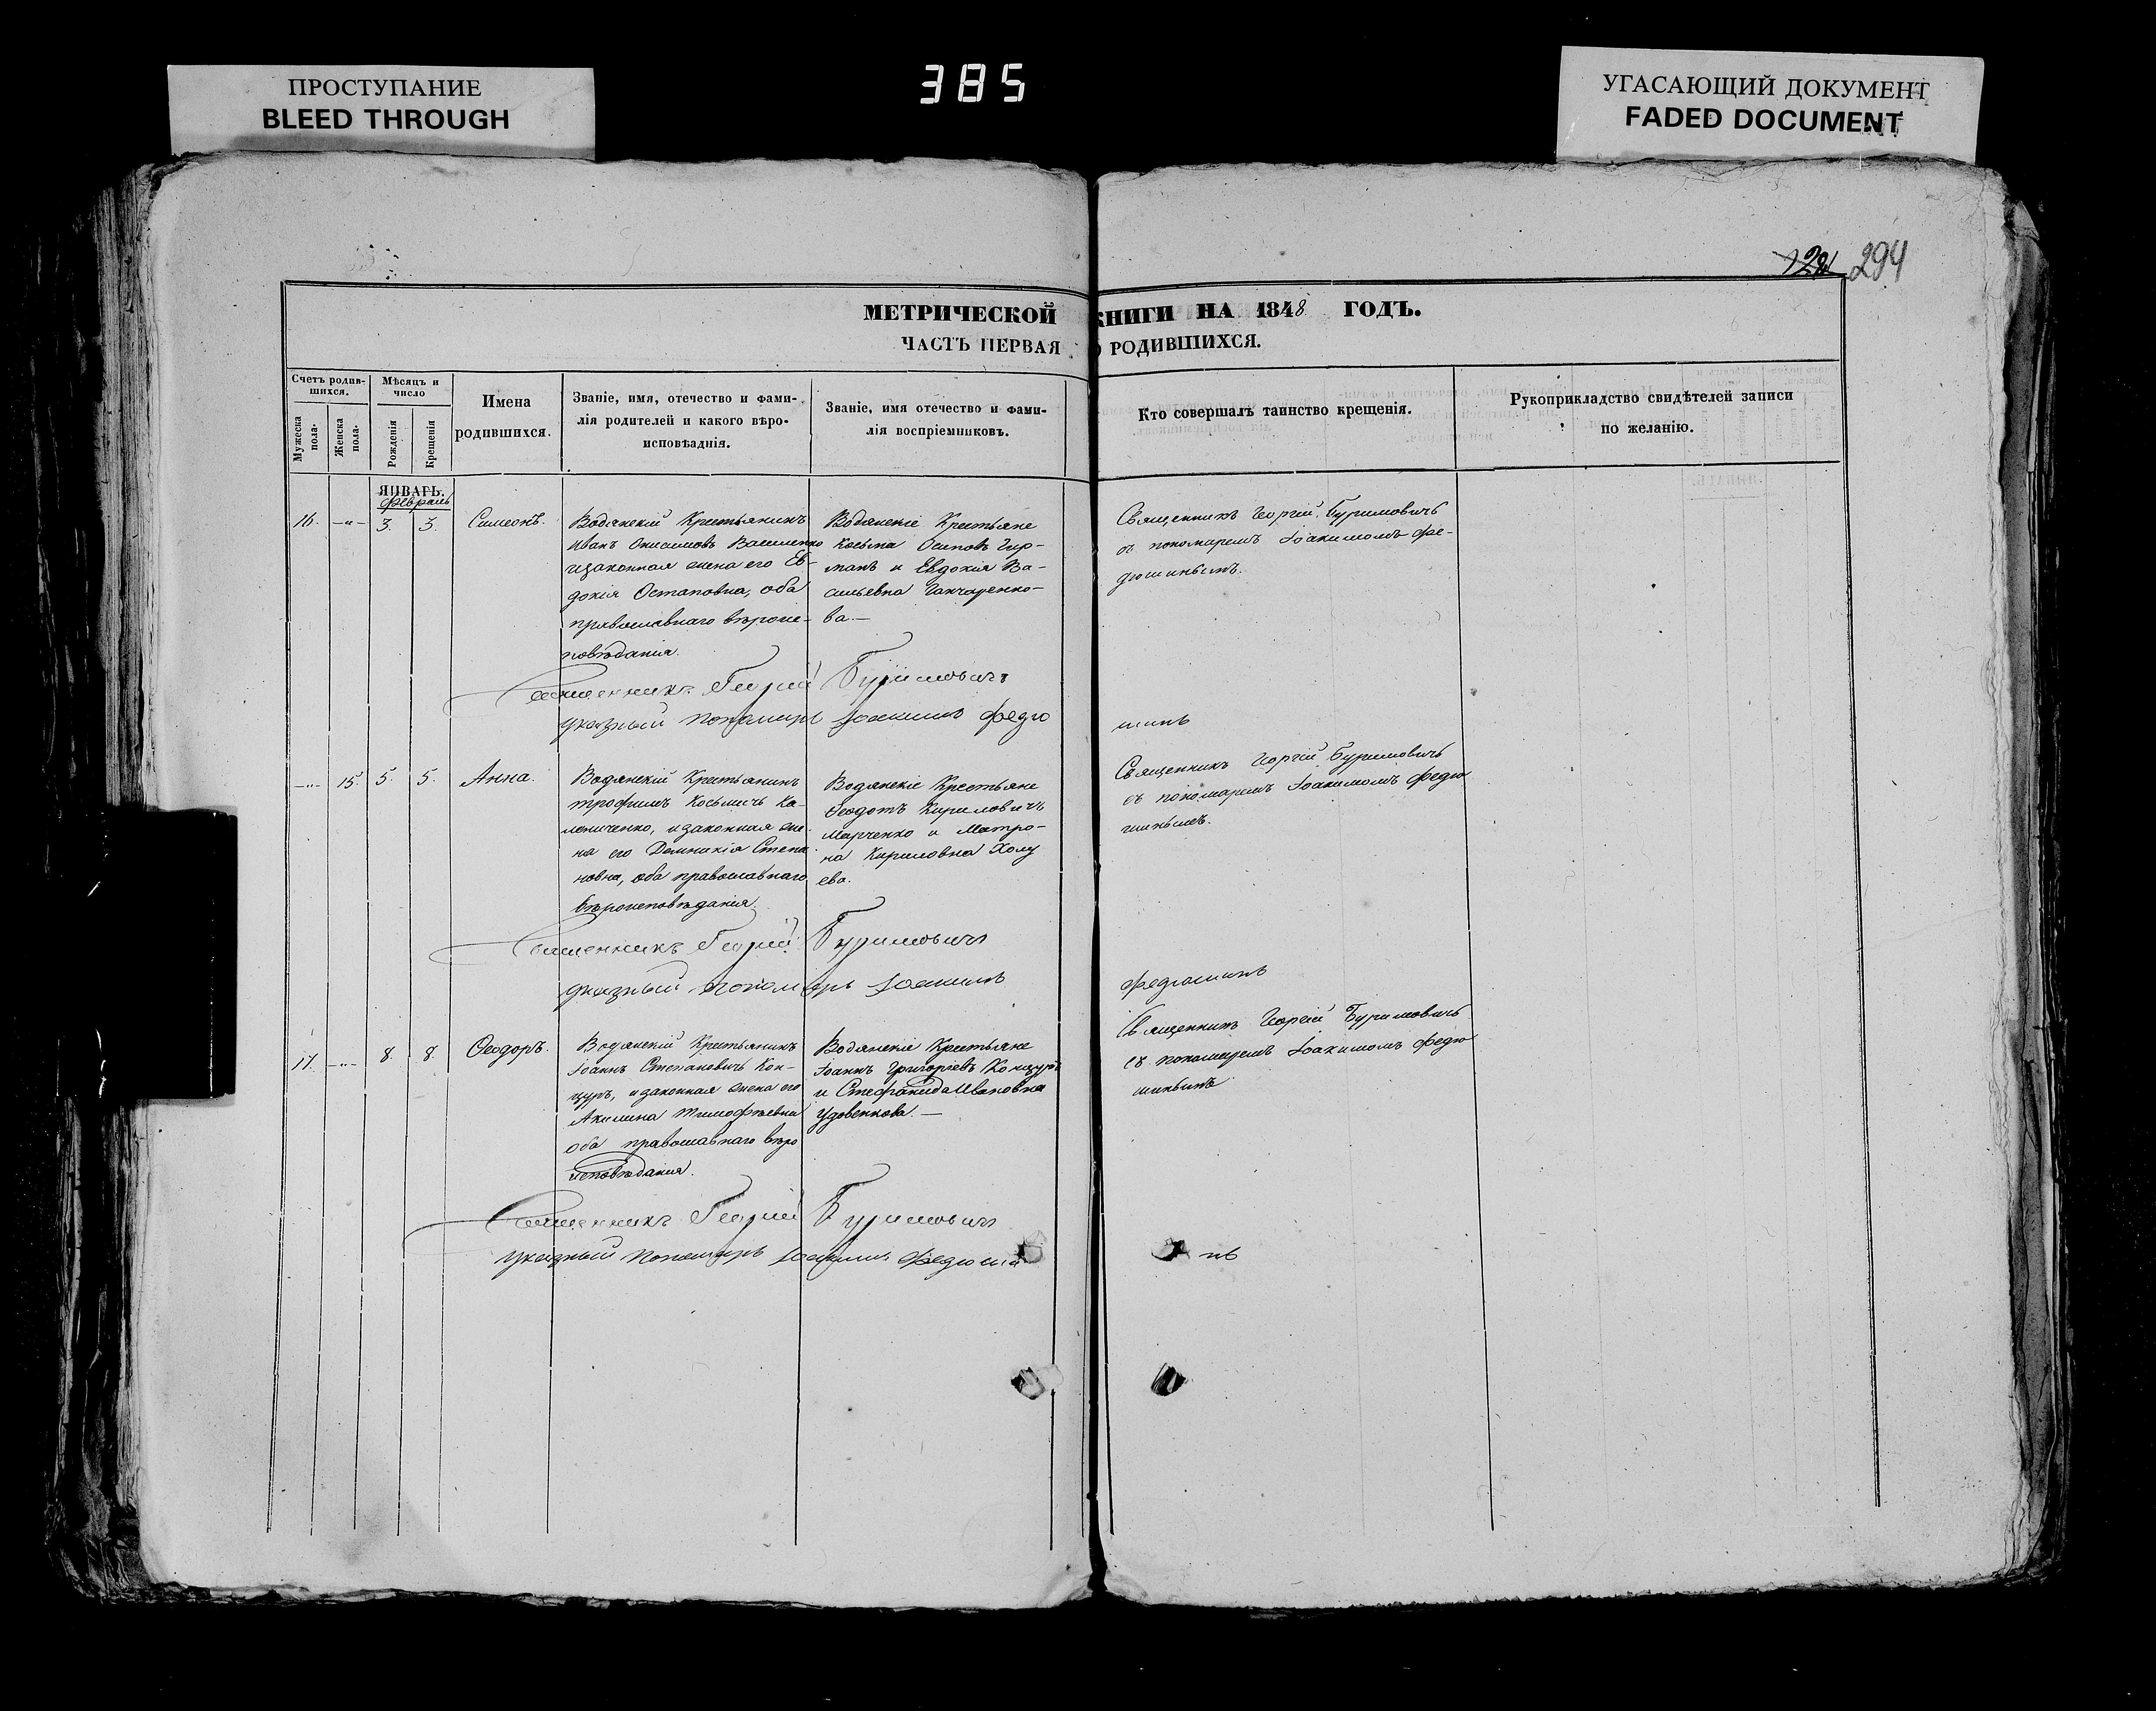 ПРОСТУПАНИЕ
BLEED THROUGH
385
УГАСАЮЩИЙ ДОКУМЕНТ
FADED DOCUMENT
294
МЕТРИЧЕСКОЙ КНИГИ НА 1848 ГОДЪ.
ЧАСТЬ ПЕРВАЯ О РОДИВШИХСЯ.
Счетъ родив-
шихся.
Мужеска
пола.
Женска
пола.
Мѣсяцъ и
число
Рожденія
Крещенія
Имена
родившихся.
Званіе, имя, отечество и фами-
лія родителей и какого вѣро-
исповѣаднія.
Званіе, имя отечество и фами-
лія воспріемниковъ.
Кто совершалъ таинство крещенія.
Рукоприкладство свидѣтелей записи
по желанію.
ЯНВАРЬ.
февраль
16. -"- 3. 3. Симеонъ.
Водянскій Крестьянинъ
Иванъ Онисимовъ Василенко
и законная жена его Ев-
докія Остаповна, оба
православнаго вѣроис-
повѣданія.
Водянскіе Крестьяне
Косьма Осиповъ
и Евдокія Ва-
сильевна Ганчаренко-
ва.—
Священникъ Георгій Буримовичь
съ пономаремъ Іоакимомъ Фе-
дюшинымъ.
Священникъ Георгій Буримовичъ
указный пономарь Іоакимъ Федю
шинъ
-"- 15. 5. 5. Анна.
Водянскій Крестьянинъ
Трофимъ Косьмичь Ка-
лениченко, и законная же-
на его Домникія Степа
новна, оба православнаго
вѣроисповѣданія.
Водянскіе Крестьяне
Ѳеодотъ Кириловичь
Марченко и Матро-
на Кириловна Холу
ева.
Священникъ Георгій Буримовичь
съ пономаремъ Іоакимомъ Федю
шинымъ.
Священникъ Георгій Буримовичъ
указный пономарь Іоакимъ Федюшинъ
17. -"- 8. 8. Ѳеодоръ.
Водянскій Крестьянинъ
Іоаннъ Степановичь Кон-
цуръ, и законная жена его
Акилина Тимофѣевна
оба православнаго вѣро
исповѣданія.
Водянскіе Крестьяне
Іоаннъ Григоріевъ Концуръ
и Стефанида Ивановна
Удовенкова.—
Священникъ Георгій Буримовичь
съ пономаремъ Іоакимомъ Федю
шинымъ
Священникъ Георгій Буримовичъ
указный пономарь Іоакимъ Федюши
нъ